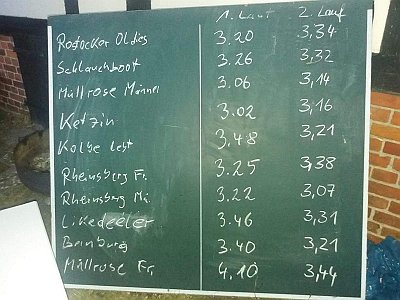 1. Lauf 2. Lauf
Rostocker Oldies 3.20 3,34
Schlauchboot 3.26 3,32
Müllrose Männer 3.06 3,14
Ketzin 3.02 3,16
Kolbe lebt 3.48 3,21
Rheinsberg Fr. 3.25 3,38
Rheinsberg Mä. 3.22 3,07
Likedeeler 3.46 3,31
3.40 3,21
Müllrose Fr. 4.10 3,44